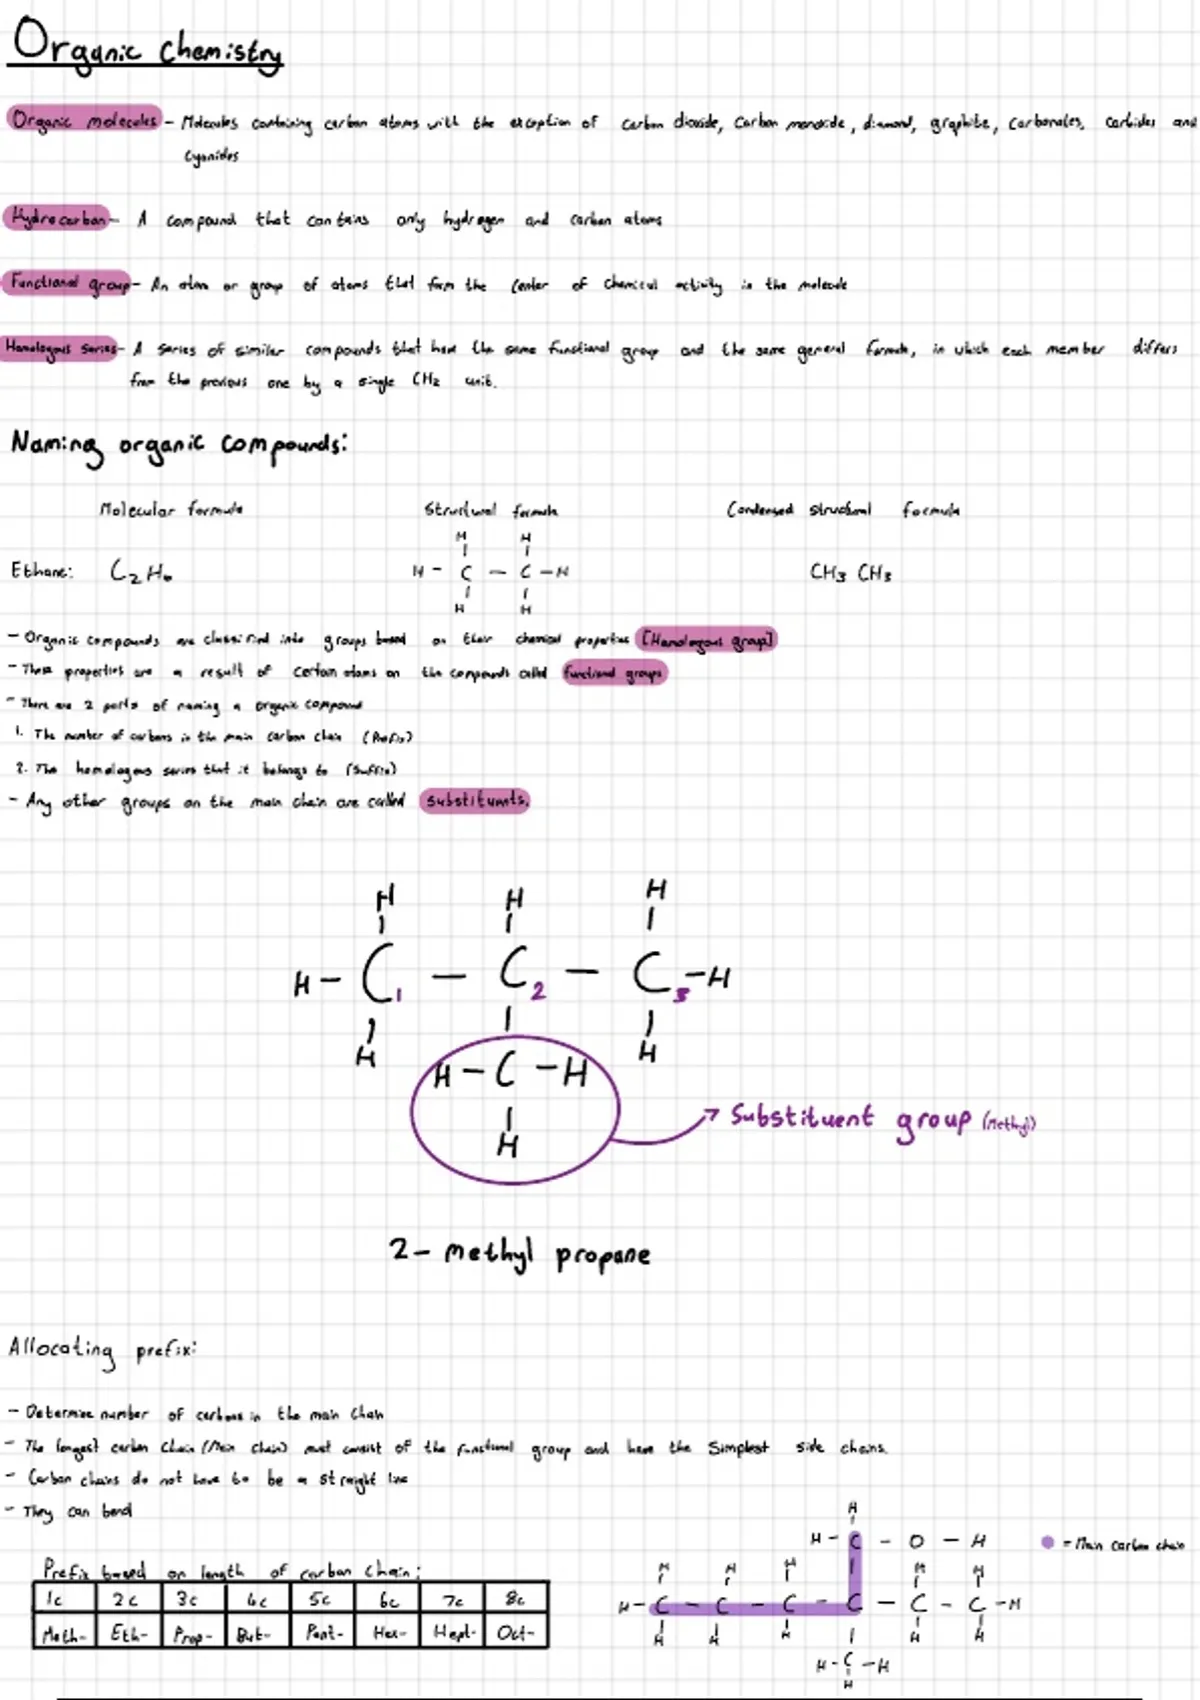 Organic chemistry
Organic molecules - Molecules containing carbon atoms with the exception of carbon dioxide, Carbon monoxide, diamond, graphite, carbonates, carbides and
cyanides
Hydrocarbon - A compound that contains only hydrogen and carbon atoms
Functional group - An atom or group of atoms that form the center of chemical activity in the molecule
Homologous series - A series of similar compounds that have the same functional group and the same general formula, in which each member differs
from the previous one by a single CH2 unit.
Naming organic compounds:
Molecular formula Structural formula Condensed structural formula
H H
Ethane: C2H6 H - C - C - H CH3 CH3
H H
- Organic compounds are classified into groups based on their chemical properties [Homologous group]
- These properties are a result of certain atoms on the compounds called functional groups
- There are 2 parts of naming a organic compound
1. The number of carbons in the main carbon chain (Prefix)
2. The homologous series that it belongs to (Suffix)
- Any other groups on the main chain are called substituents.
H H H
H - C1 - C2 - C3 - H
H H
H - C - H
H
Substituent group (Methyl)
2- methyl propane
Allocating prefix:
- Determine number of carbons in the main chain
- The longest carbon chain (Main chain) must consist of the functional group and have the simplest side chains.
- Carbon chains do not have to be a straight line
- They can bend
Prefix based on length of carbon chain:
1c 2c 3c 4c 5c 6c 7c 8c
Meth- Eth- Prop- But- Pent- Hex- Hept- Oct-
H
H - C - O - H
= Main carbon chain
H H H H H
H - C - C - C - C - C - C - H
H H H H H
H - C - H
H